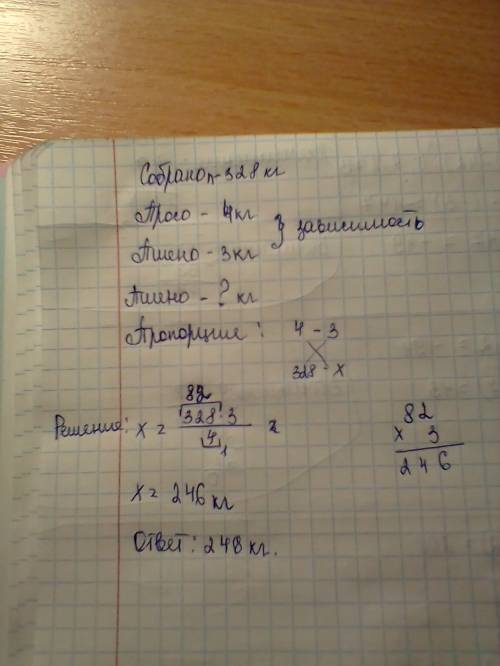 Собрано п - 328 кг
Просо - 4 кг
Пшено - 3 кг } зависимость
Пшено - ? кг
Пропорция: 4 - 3
328 - x
82
Решение: x = 328 · 3 =
4 1
x = 246 кг
Ответ: 248 кг.
82
x 3
246